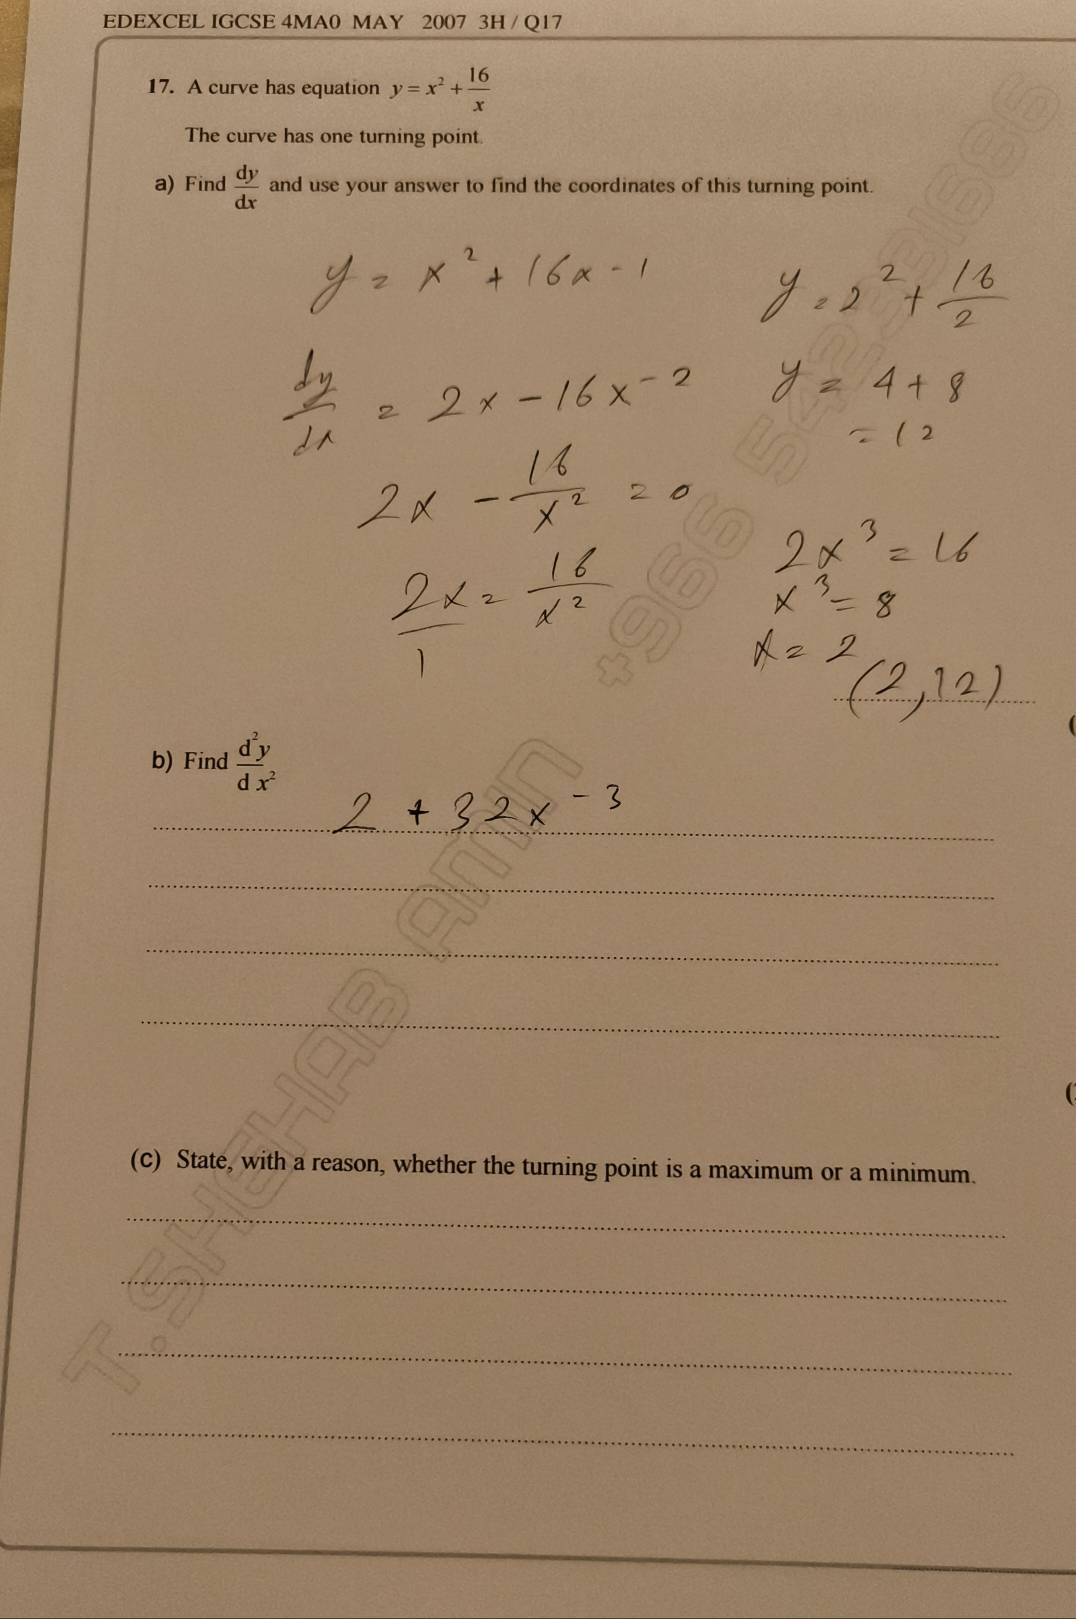 EDEXCEL IGCSE 4MA0 MAY 2007 3H / Q17
17. A curve has equation y = x² + 16/x
The curve has one turning point.
a) Find dy/dx and use your answer to find the coordinates of this turning point.
y = x² + 16x - 1
dy/dx = 2x - 16x⁻²
2x - 16/x² = 0
2x/1 = 16/x²
y = 2² + 16/2
y = 4 + 8
= 12
2x³ = 16
x³ = 8
x = 2
(2, 12)
b) Find d²y/dx²
2 + 32x⁻³
(c) State, with a reason, whether the turning point is a maximum or a minimum.
T.SHEHAB AMIN +966 542331686